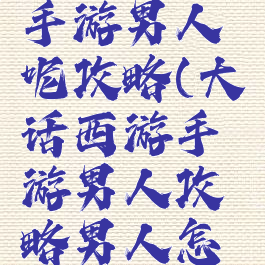 手游男人
呢攻略(大
话西游手
游男人攻
略男人怎